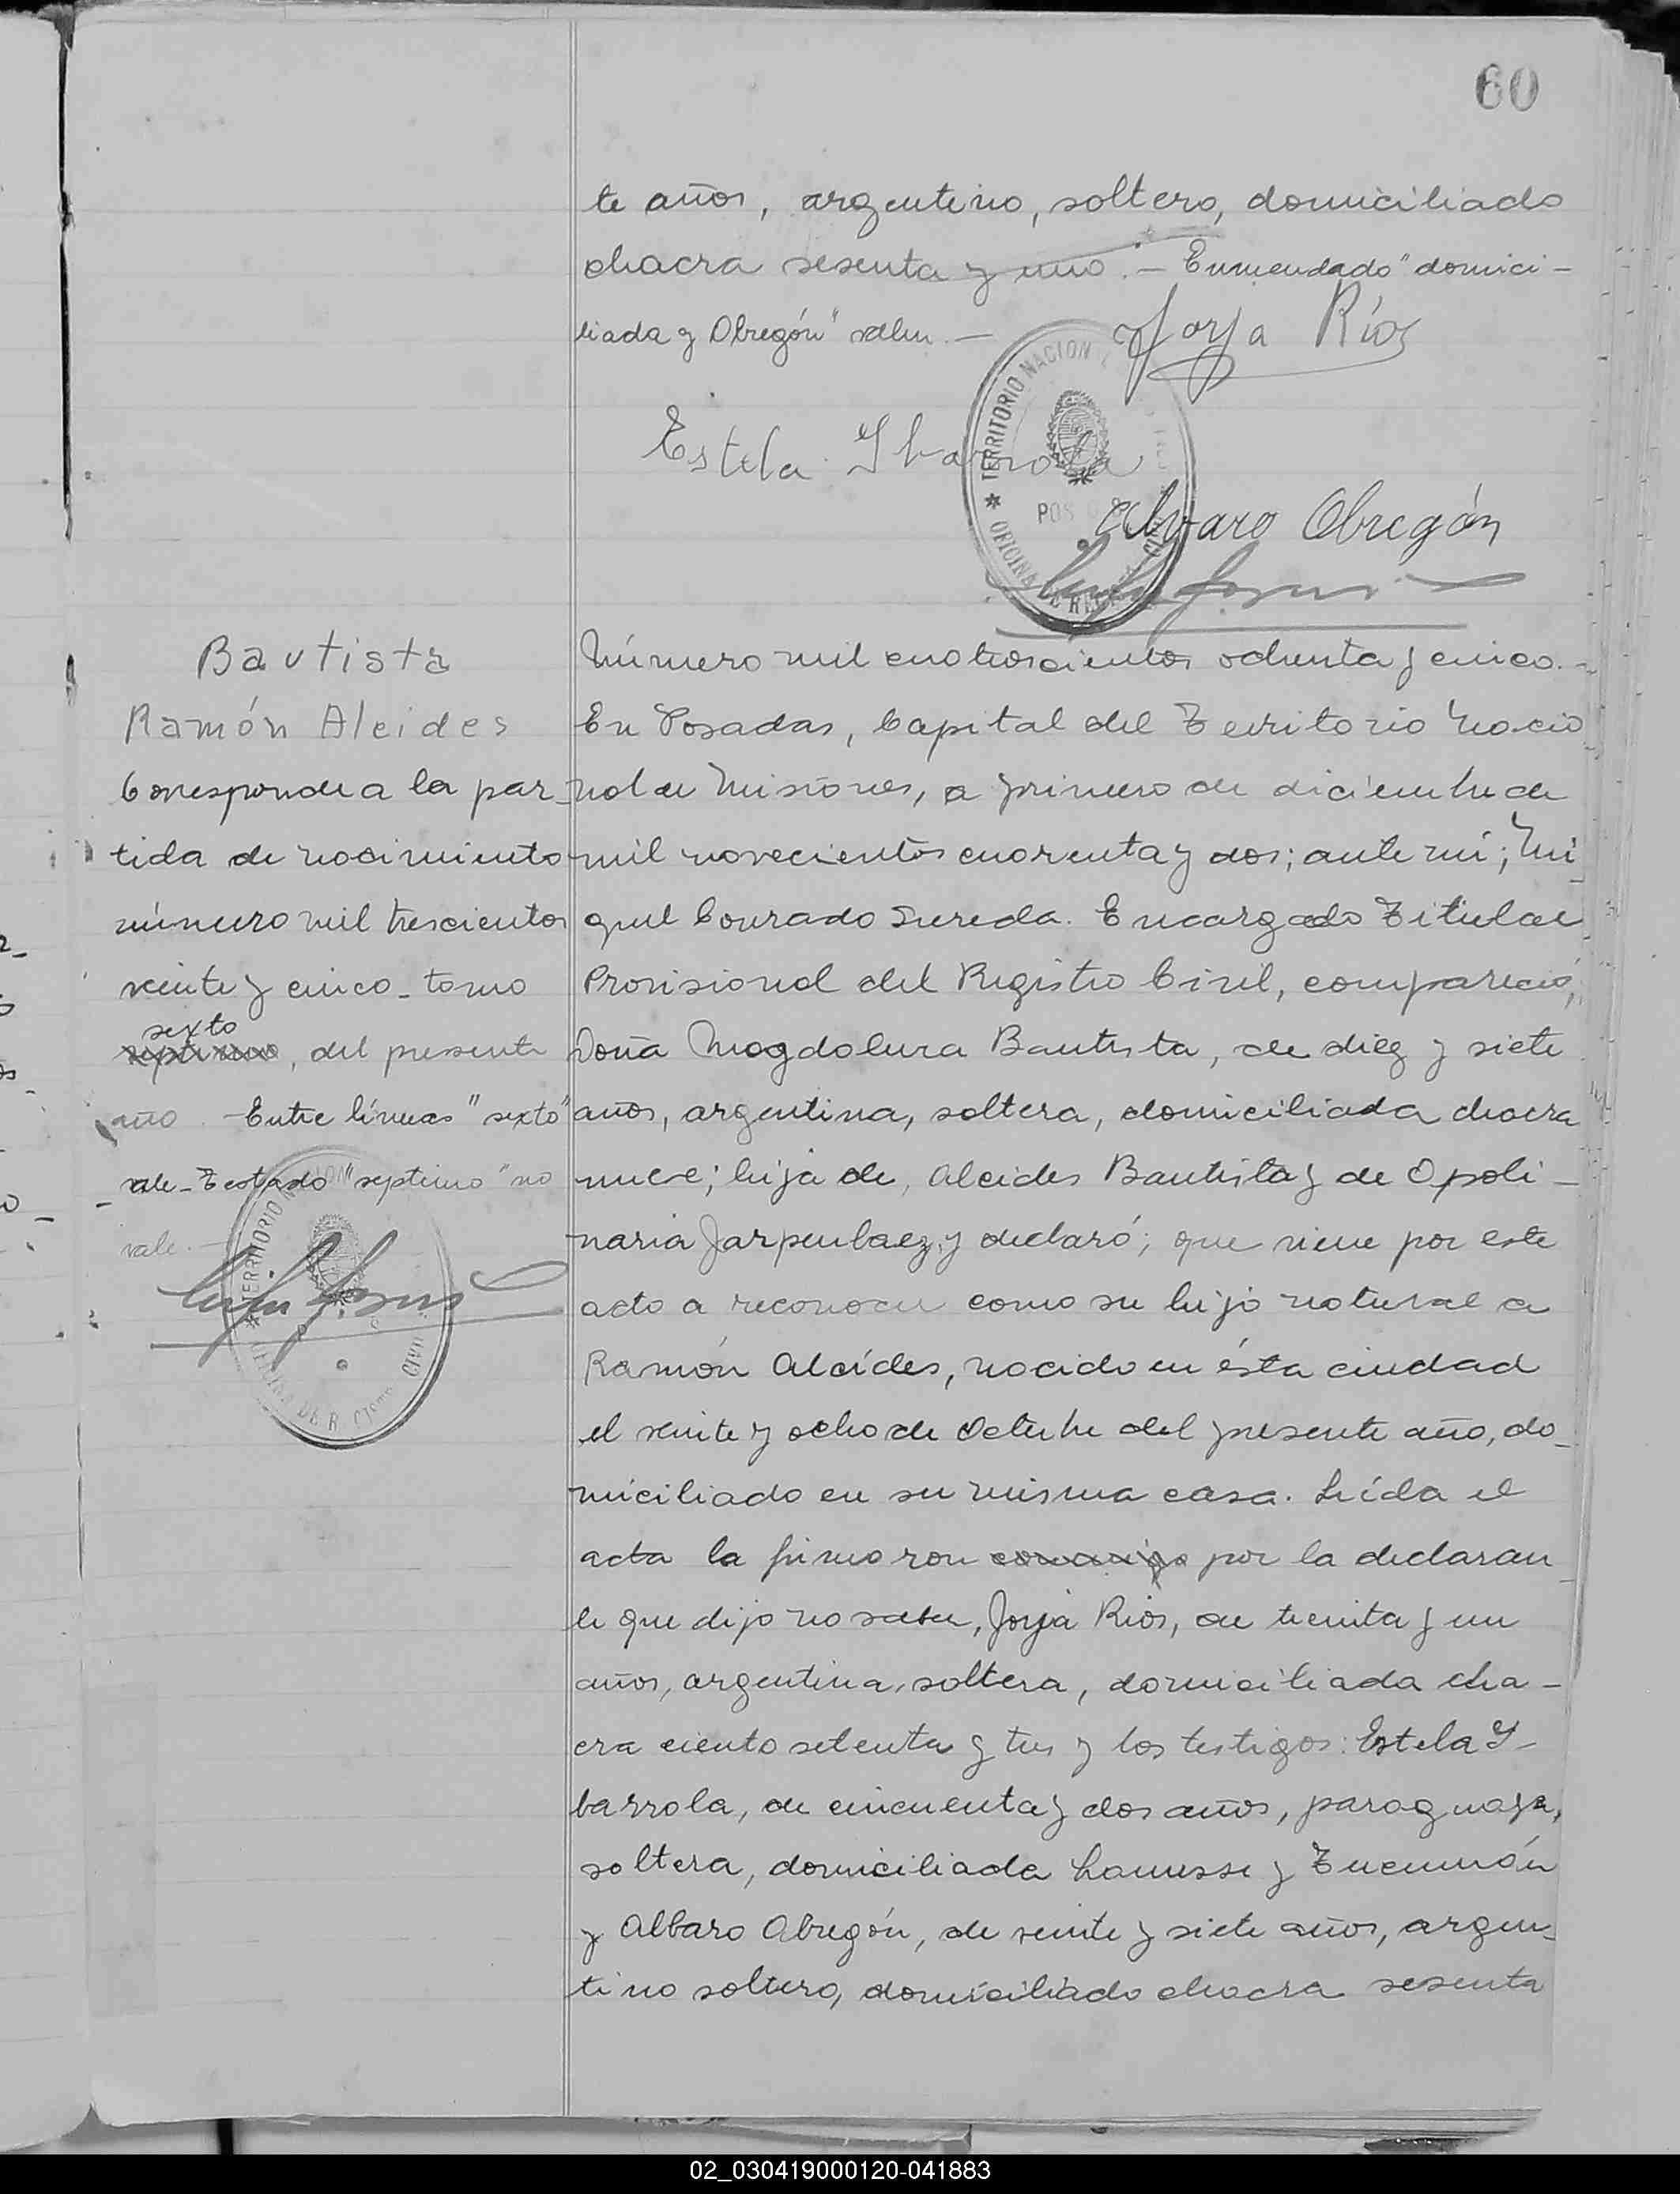 60
te años, argentino, soltero, domiciliado
chacra sesenta y uno. — Enmendado "domici-
liada y Obregón" valen. —
Jorja Ríos
TERRITORIO NACION
Estela Ibarrola
POS
Alvaro Obregón
OFICINA DE RE
Bautista
Ramón Alcides
Corresponde a la par-
tida de nacimiento
número mil trescientos
veinte y cinco - tomo
sexto
septimo, del presente
año. - Entre líneas "sexto"
vale - Testado "septimo" no
vale. -
TERRITORIO
ION
OFICINA DE R
CIVIL
Número mil cuatroscientos ochenta y cinco. -
En Posadas, Capital del Territorio Nacio
nal de Misiones, a primero de diciembre de
mil novecientos cuarenta y dos; ante mí; Mi-
guel Conrado Sureda. Encargado Titular
Provisional del Registro Civil, compareció,
Doña Magdalena Bautista, de diez y siete
años, argentina, soltera, domiciliada chacra
nueve; hija de, Alcides Bautista y de Opoli-
naria y declaró; que viene por este
acto a reconocer como su hijo natural a
Ramón Alcídes, nacido en ésta ciudad
el veinte y ocho de Octubre del presente año, do-
miciliado en su misma casa. Leída el
acta la firmaron conmigo por la declaran-
te que dijo no saber, Jorja Rios, de treinta y un
años, argentina, soltera, domiciliada cha-
cra ciento setenta y tres y los testigos: Estela I-
barrola, de cincuenta y dos años, paraguaya,
soltera, domiciliada Lanusse y Tucumán
y Albaro Obregón, de veinte y siete años, argen-
tino soltero, domiciliado chacra sesenta
02_030419000120-041883